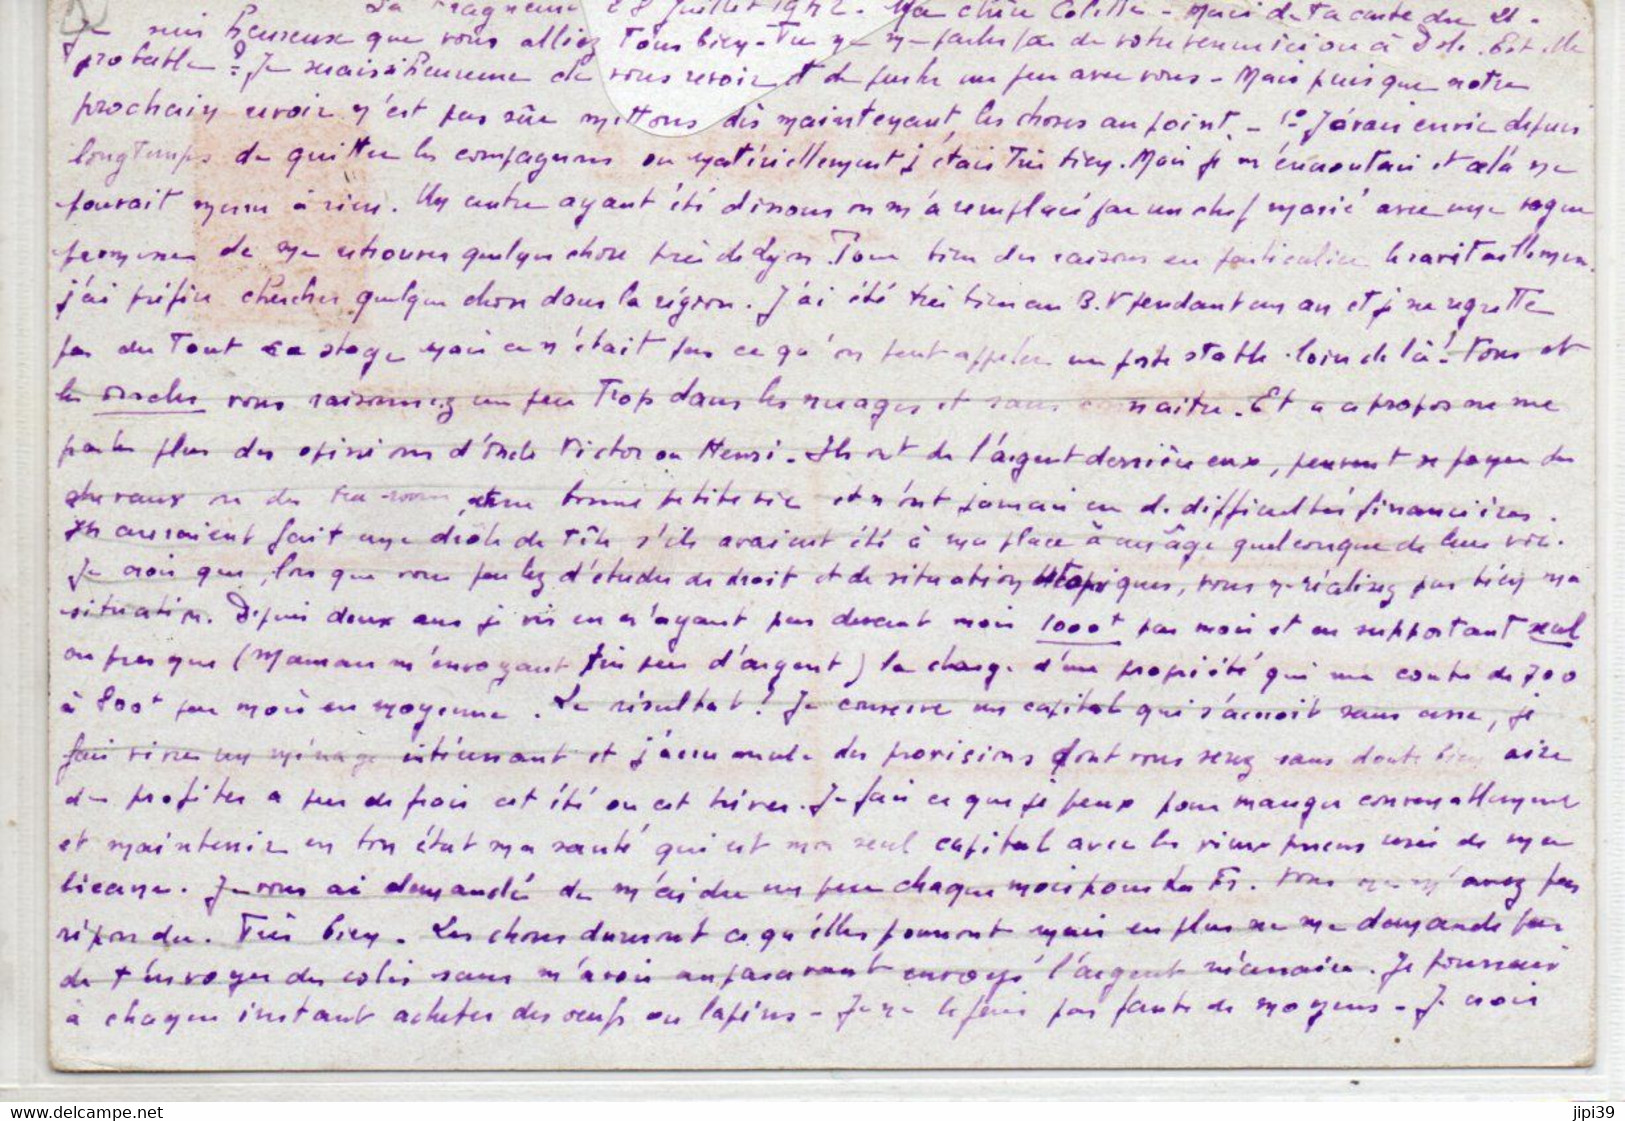 28 Juillet 1942 - Ma chère Colette - Merci de ta carte du 21 -
Je suis heureux que vous alliez tous bien - Tu ne me parles pas de votre venue ici ou à Dole. Est elle
probable ? Je serais si heureux de vous revoir et de parler un peu avec vous - Mais puisque notre
prochain revoir n'est pas sûr mettons dès maintenant les choses au point. - 1º J'avais envie depuis
longtemps de quitter les compagnons où matériellement j'étais très bien. Mais je m'encroutais et celà ne
pouvait mener à rien. Un centre ayant été dissous on m'a remplacé par un chef marié avec une vague
promesse de me retrouver quelque chose près de Lyon. Pour bien des raisons en particulier le ravitaillement
j'ai préféré chercher quelque chose dans la région. J'ai été très bien au B.V pendant un an et je ne regrette
pas du tout ce stage mais ce n'était pas ce qu'on peut appeler un poste stable. loin de là ! Tous et
les oncles vous raisonnez un peu trop dans les nuages et sans connaitre. Et a propos ne me
parle plus des opinions d'Oncle Victor ou Henri - Ils ont de l'argent derrière eux, peuvent se payer des
chevaux ou des tea-room, une bonne petite vie et n'ont jamais eu de difficultés financières.
Ils auraient fait une drôle de tête s'ils avaient été à ma place à un âge quelconque de leur vie.
Je crois que, lorsque vous parlez d'études de droit et de situation utopiques, vous ne réalisez pas bien ma
situation. Depuis deux ans je vis en n'ayant pas devant moi 1000f par mois et en supportant seul
ou presque (Maman m'envoyant très peu d'argent) la charge d'une propriété qui me coute de 700
à 800f par mois en moyenne. Le résultat ! Je conserve un capital qui s'accroit sans cesse, je
fais vivre un ménage intéressant et j'accumule des provisions dont vous serez sans doute bien aise
de profiter a peu de frais cet été ou cet hiver. Je fais ce que je peux pour manger convenablement
et maintenir en bon état ma santé qui est mon seul capital avec les vieux pneus usés de ma
bécane. Je vous ai demandé de m'aider un peu chaque mois pour La Fr. Vous ne m'avez pas
répondu. Très bien. Les choses dureront ce qu'elles pourront mais en plus ne me demande pas
de t'envoyer des colis sans m'avoir auparavant envoyé l'argent nécessaire. Je pourrais
à chaque instant acheter des oeufs ou lapins - Je ne le fais pas faute de moyens - Je crois
www.delcampe.net
jipi39